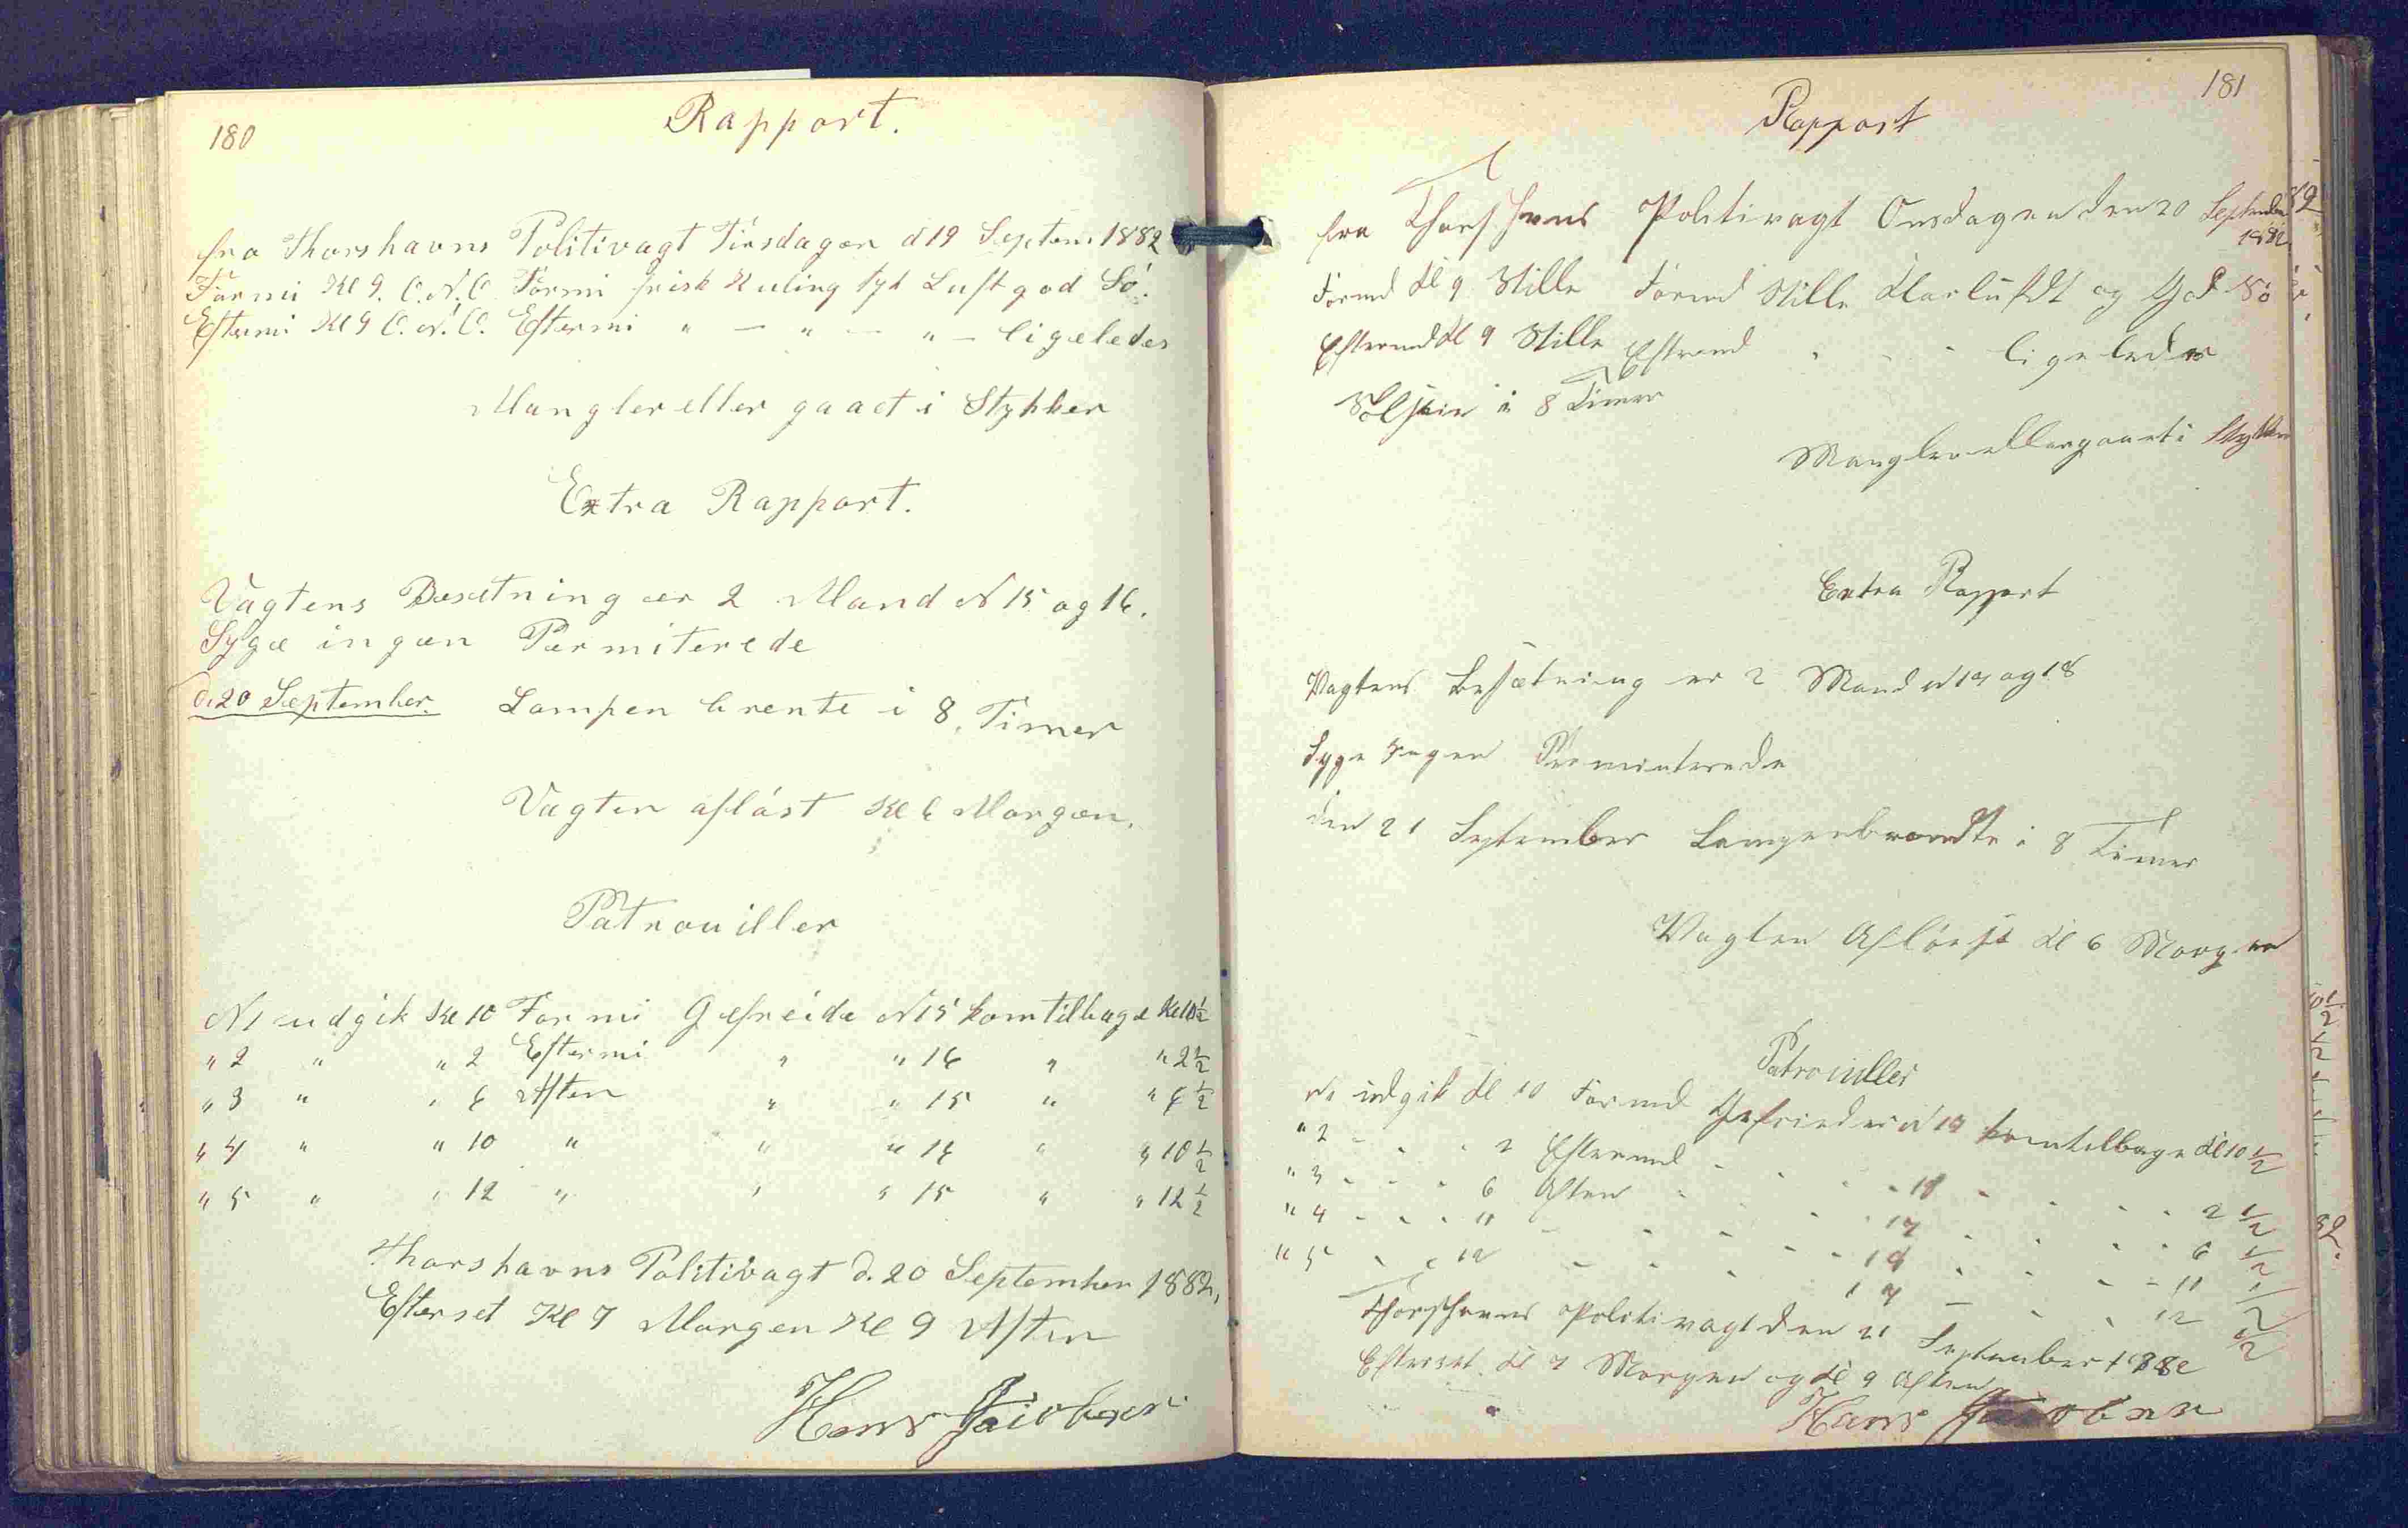 180
Rapport.
fra Thorshavns Politivagt Tirsdagen d 19 Septem 1882
Formi Kl 9. O.N.O. Formi frisk Kuling tyk Luft god Sö.
Eftermi Kl 9 O.N.O. Eftermi " — " — " — ligeledes
Mangler eller gaaet i Stykker
Extra Rapport.
Vagtens Besetning er 2 Mand N 15 og 16.
Syge ingen Permiterede
d. 20 September. Lampen brente i 8. Timer
Vagten aflöst Kl 6 Morgen.
Patrouiller
N1 udgik Kl 10 Formi Gefreide N 15 kom tilbage Kl 10 1/2
" 2 " " 2 Eftermi " " 16 " " 2 1/2
" 3 " " 6 Aften " " 15 " " 6 1/2
" 4 " " 10 " " " 16 " " 10 1/2
" 5 " " 12 " " " 15 " " 12 1/2
Thorshavns Politivagt d. 20 September 1882,
Efterset Kl 7 Morgen Kl 9 Aften
Hans Jacobsen
181
Rapport
fra Thorshavns Politivagt Onsdagen den 20 September
1882
Formd Kl 9 Stille Formd Stille Klarluft og God Sö
Eftermd Kl 9 Stille Eftermd " - - ligeledes
Solskin i 8 Timer
Mangler eller gaaet i Stykker
Extra Rapport
Vagtens Besætning er 2 Mand N 17 og 18
Syge Ingen Perminterede
den 21 September Lampen brændte i 8 Timer
Vagten Aflöest Kl 6 Morgen
Patrouiller
N1 udgik Kl 10 Formd Gefreider N 17 kom tilbage Kl 10 1/2
" 2 - - - 2 Eftermd - - - 18 - - - 2 1/2
" 3 - - - 6 Aften - - - 17 - - - 6 1/2
" 4 - - - 11 - - - - 18 - - - 11 1/2
" 5 - - - 12 - - - - 17 - - - 12 1/2
Thorshavns Politivagt den 21 September 1882
Efterset Kl 7 Morgen og Kl 9 Aften
Hans Jacobsen